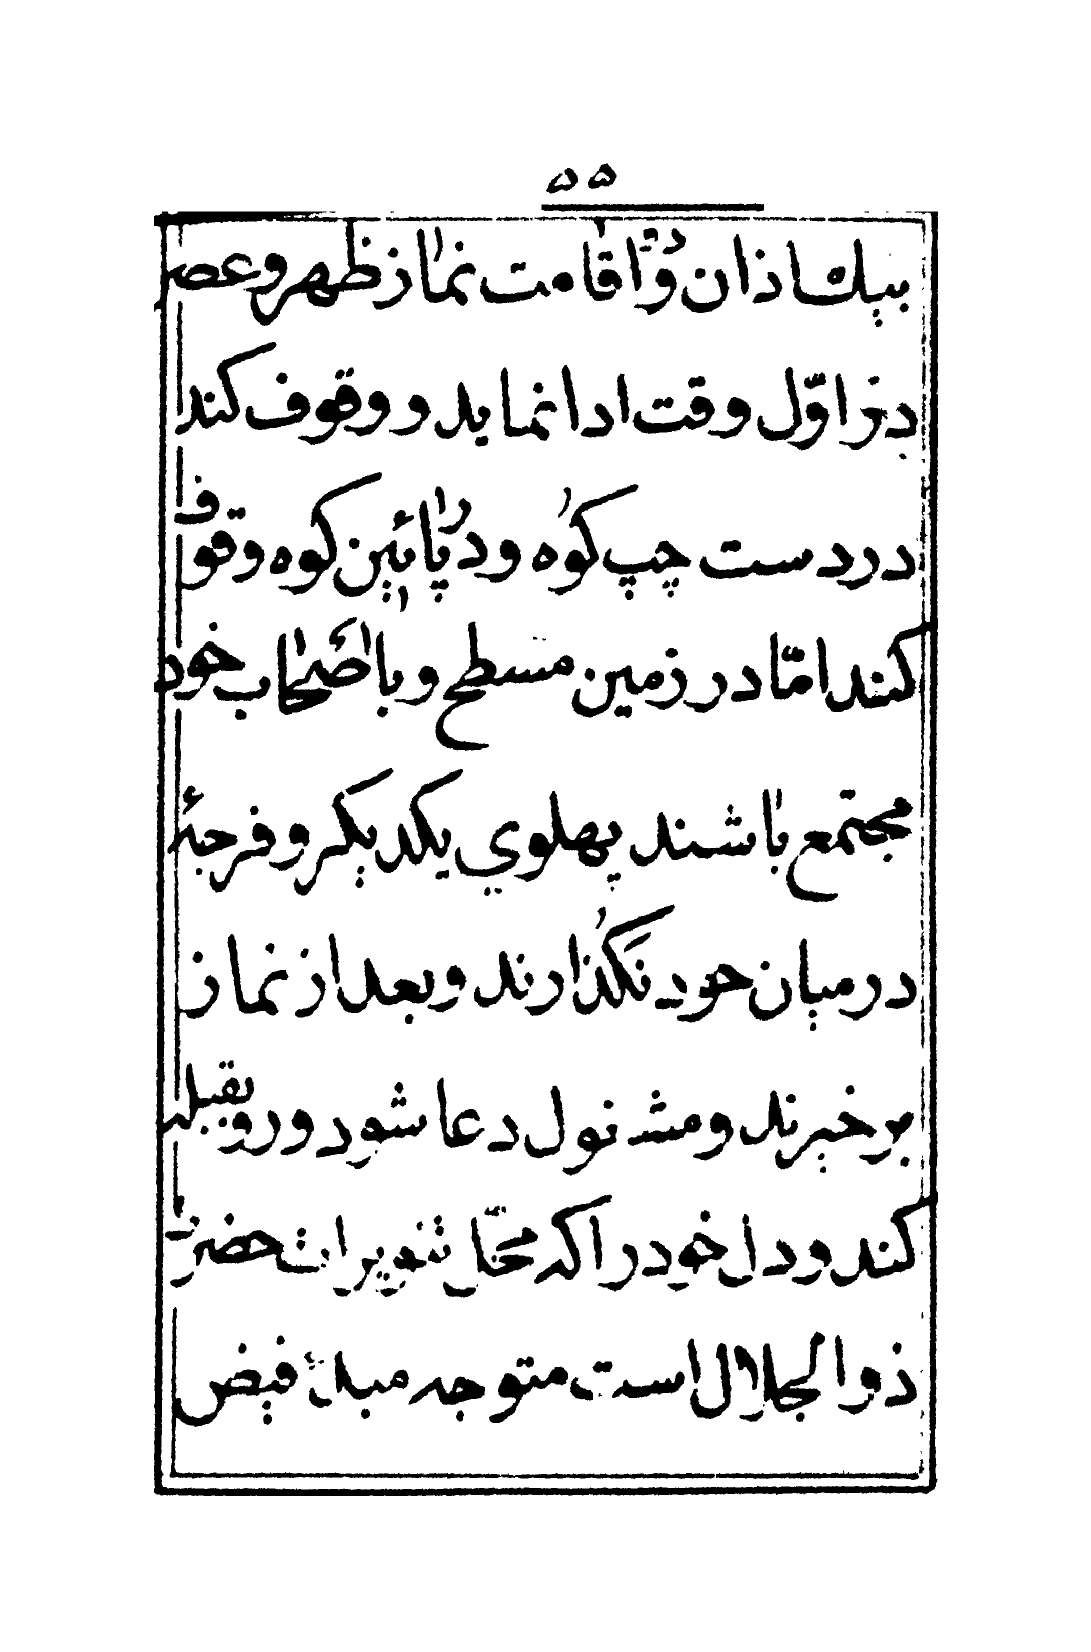 ۵۵
بیك اذان و دو اقامت نماز ظهر و عصر
در اوّل وقت ادا نماید و وقوف کند
در دست چپ کوه و در پائین کوه وقوف
کند امّا در زمین مسطح و با اصحاب خود
مجتمع باشند پهلوي یکدیگر و فرجهٔ
در میان خود نگذارند و بعد از نماز
بر خیزند و مشغول دعا شود و رو بقبله
کند و دل خود را که محلّ تنویرات حضرت
ذوالجلال است متوجه مبدئ فیض